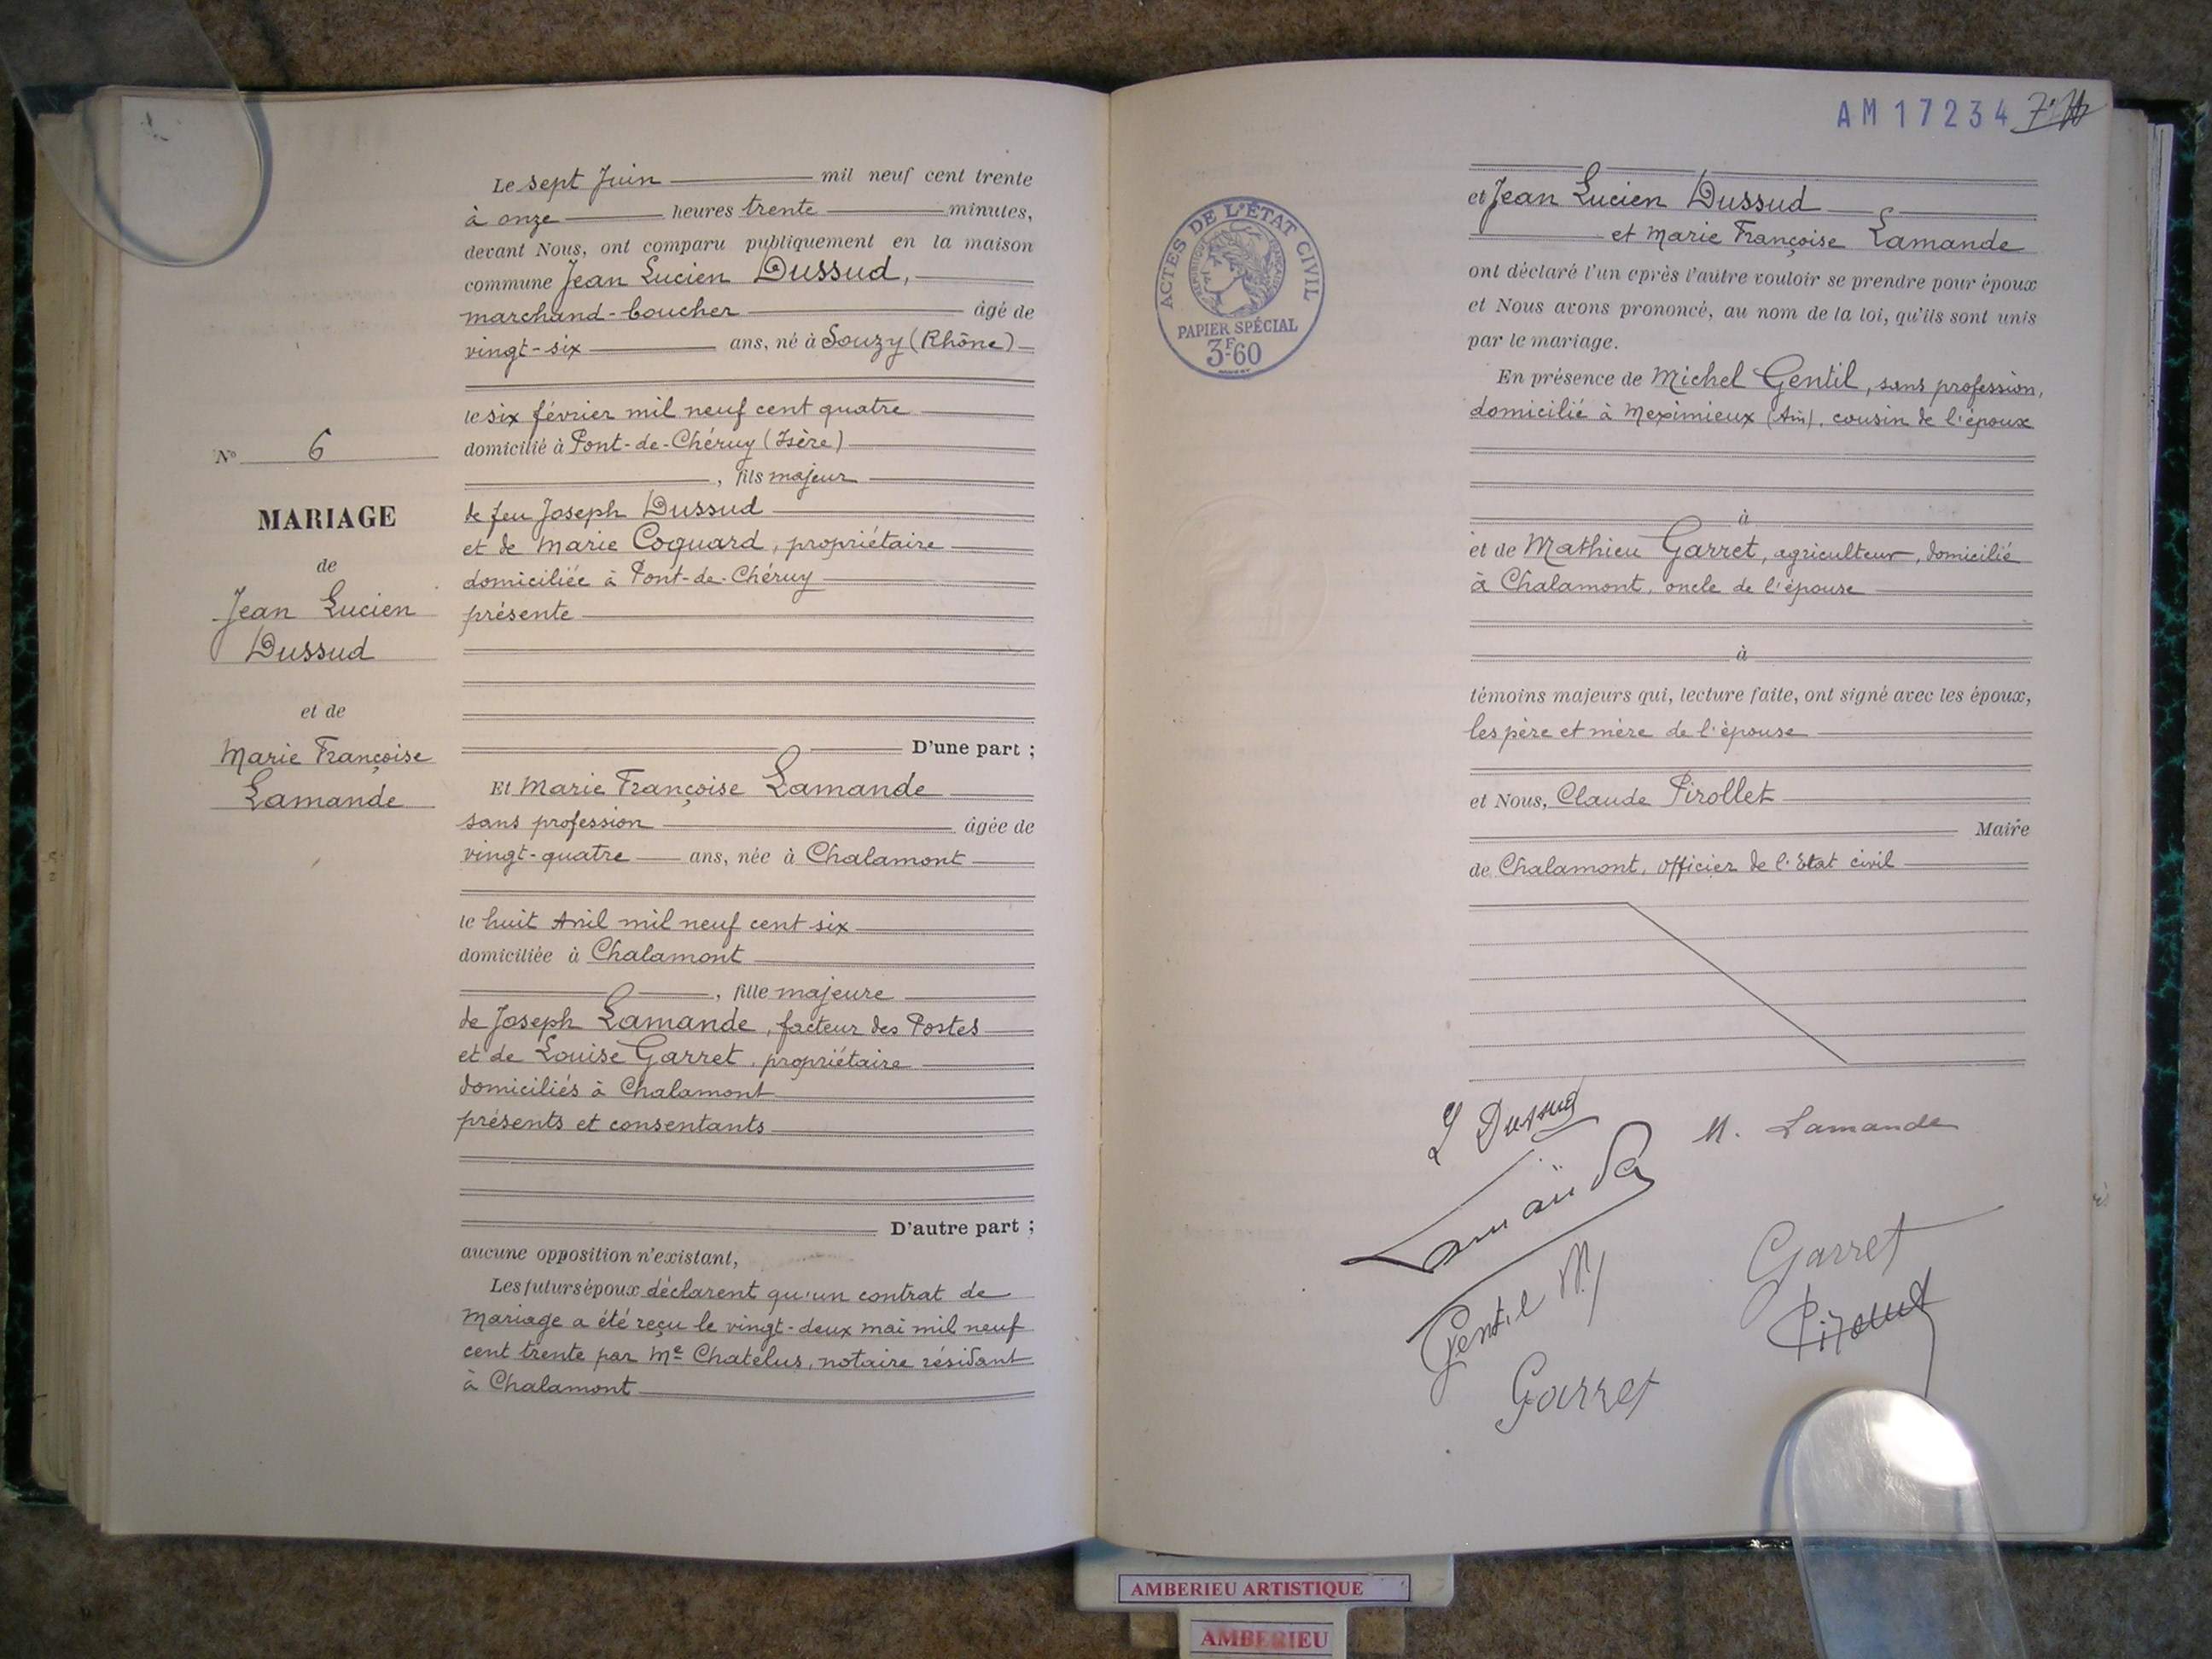 Le sept Juin mil neuf cent trente
à onze heures trente minutes,
devant Nous, ont comparu publiquement en la maison
commune Jean Lucien Dussud,
marchand-boucher âgé de
vingt-six ans, né à Souzy (Rhône)
le six février mil neuf cent quatre
domicilié à Pont-de-Chéruy (Isère)
, fils majeur
de feu Joseph Dussud
et de Marie Coquard, propriétaire
domiciliée à Pont-de-Chéruy
présente
D'une part ;
Et Marie Françoise Lamande
sans profession âgée de
vingt-quatre ans, née à Chalamont
le huit Avril mil neuf cent six
domiciliée à Chalamont
, fille majeure
de Joseph Lamande, facteur des Postes
et de Louise Garret, propriétaire
domiciliés à Chalamont
présents et consentants
D'autre part ;
aucune opposition n'existant,
Les futurs époux déclarent qu'un contrat de
Mariage a été reçu le vingt-deux mai mil neuf
cent trente par Me Chatelus, notaire résidant
à Chalamont
N° 6
MARIAGE
de
Jean Lucien
Dussud
et de
Marie Françoise
Lamande
AM17234
et Jean Lucien Dussud
et Marie Françoise Lamande
ont déclaré l'un après l'autre vouloir se prendre pour époux
et Nous avons prononcé, au nom de la loi, qu'ils sont unis
par le mariage.
En présence de Michel Gentil, sans profession,
domicilié à Meximieux (Ain), cousin de l'époux
à
et de Mathieu Garret, agriculteur, domicilié
à Chalamont, oncle de l'épouse
à
témoins majeurs qui, lecture faite, ont signé avec les époux,
les père et mère de l'épouse
et Nous, Claude Pirollet
Maire
de Chalamont, officier de l'Etat civil
L Dussud
M. Lamande
Lamande
Garret
Gentil M
Pirollet
Garret
ACTES DE L'ÉTAT CIVIL
RÉPUBLIQUE FRANÇAISE
PAPIER SPÉCIAL
3F60
AMBERIEU ARTISTIQUE
AMBERIEU